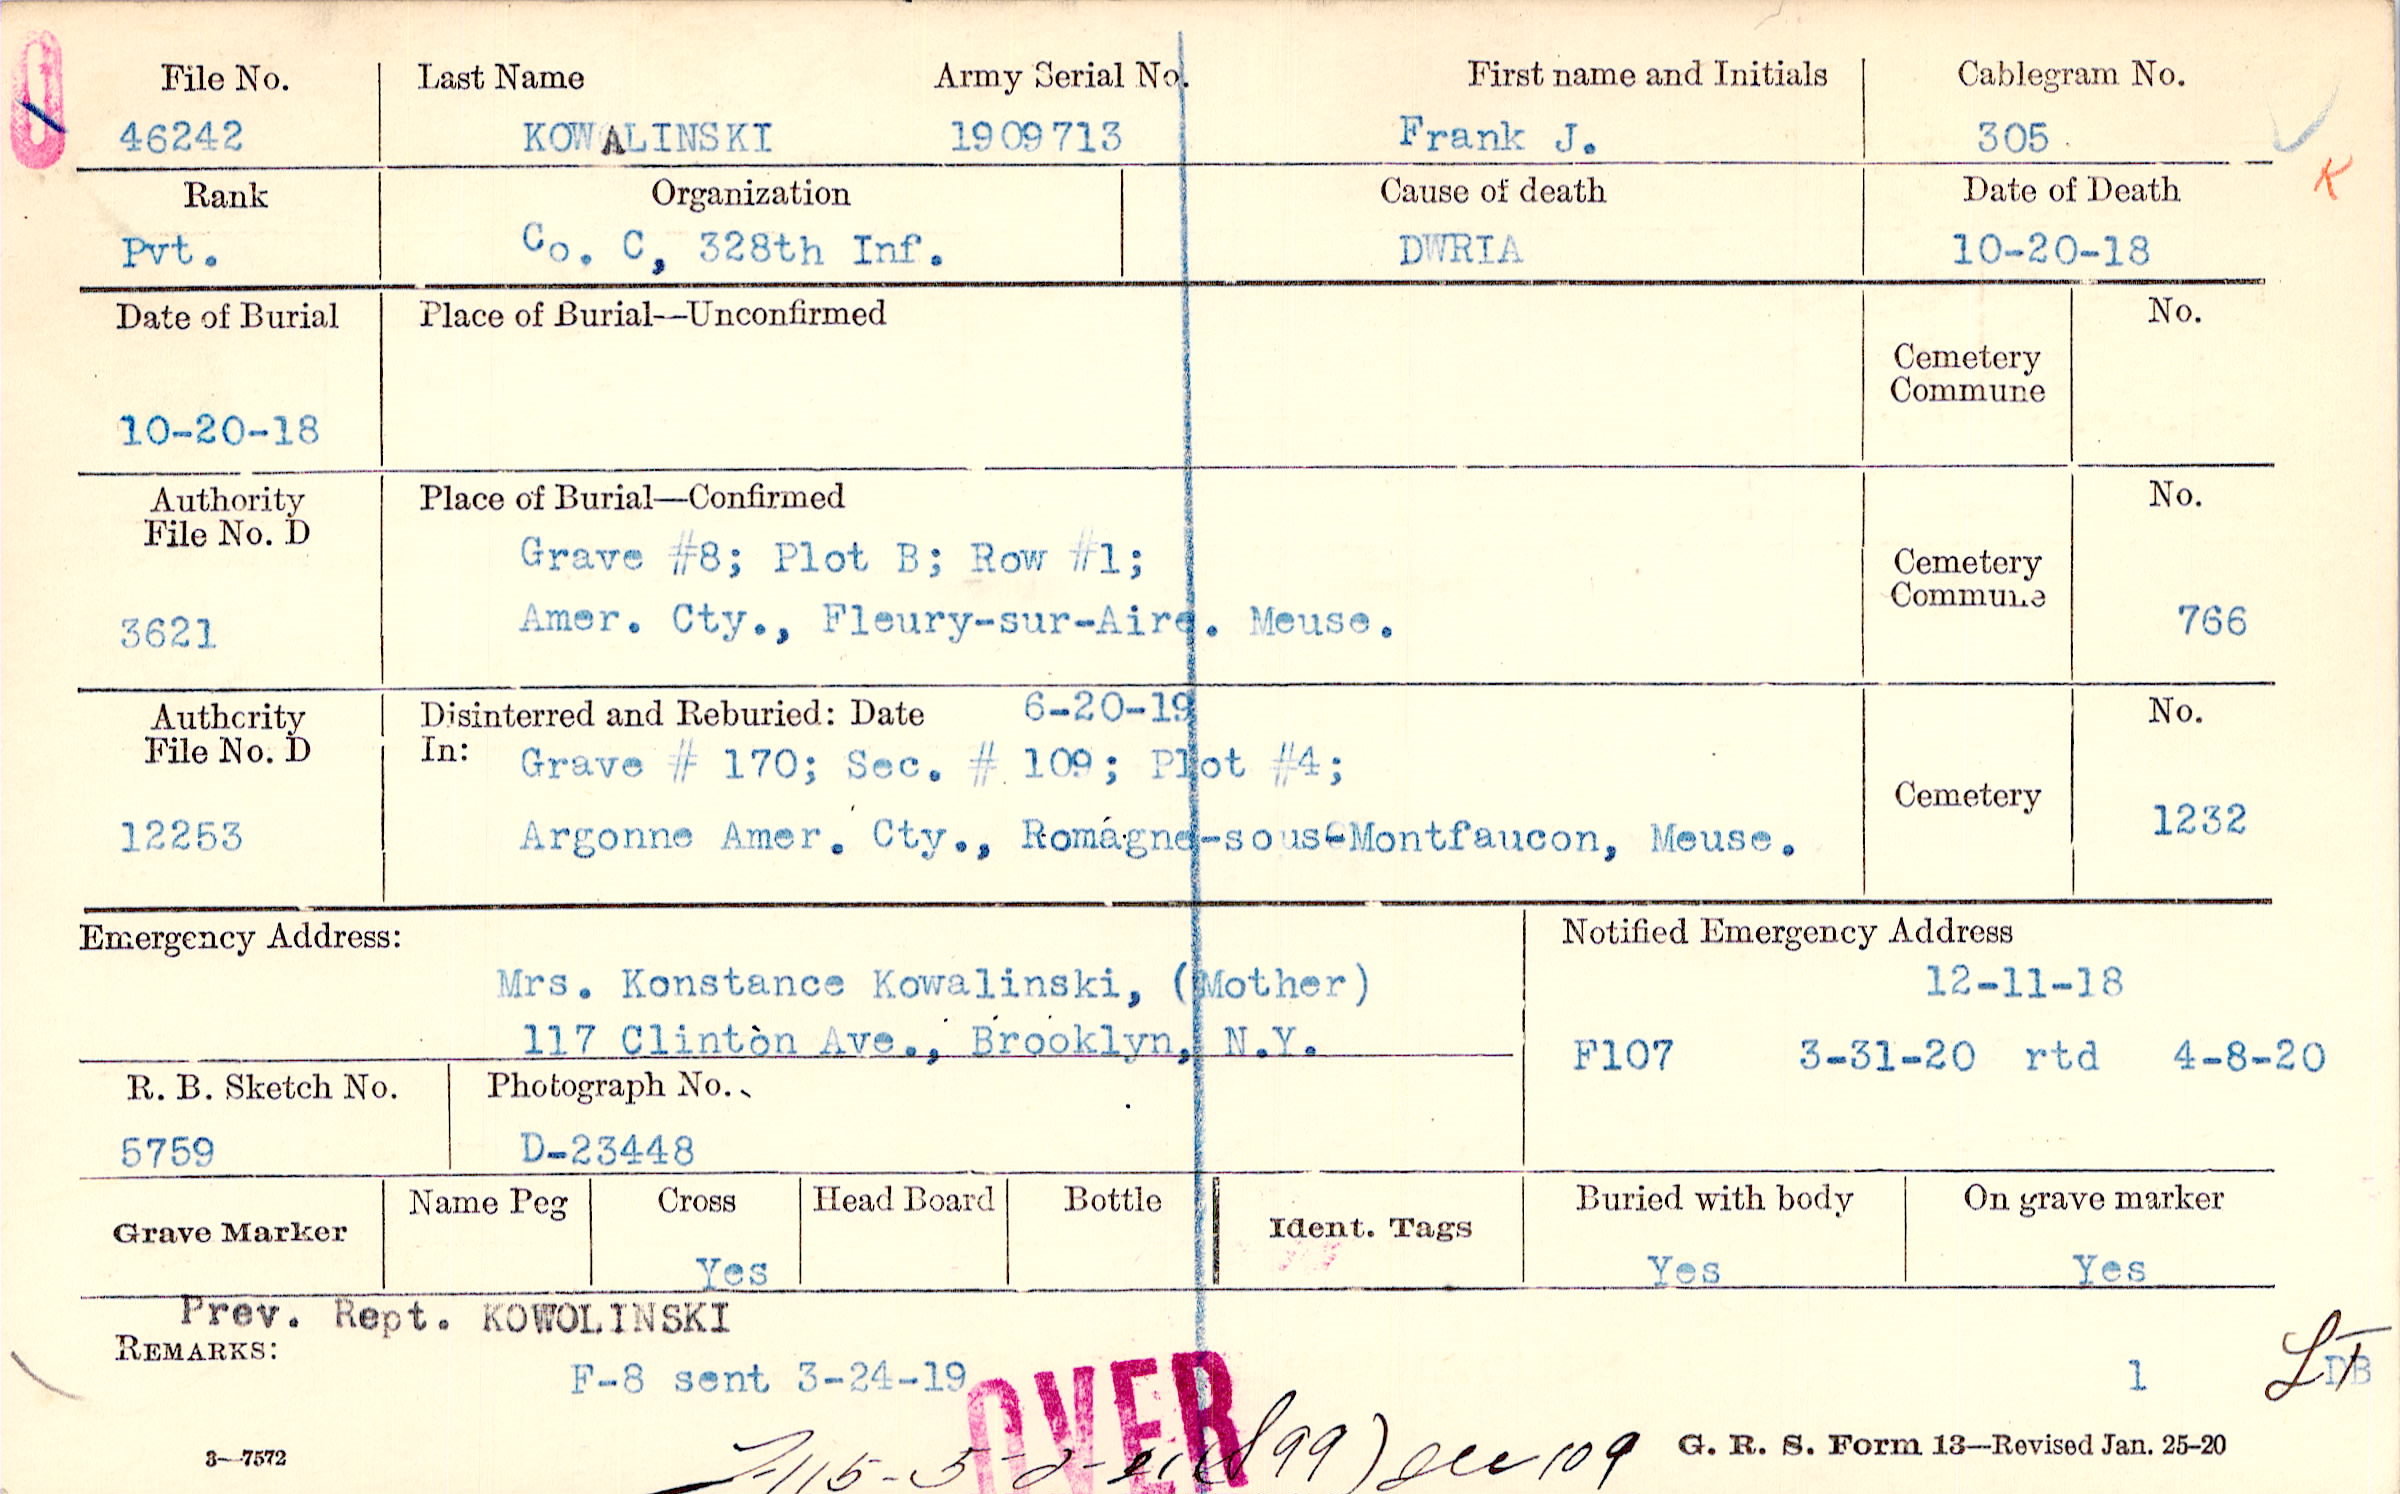 File No. Last Name Army Serial No. First name and Initials Cablegram No.
46242 KOWALINSKI 1909713 Frank J. 305
K
Rank Organization Cause of death Date of Death
Pvt. Co. C, 328th Inf. DWRIA 10-20-18
Date of Burial Place of Burial—Unconfirmed No.
Cemetery
Commune
10-20-18
Authority Place of Burial—Confirmed No.
File No. D
Grave #8; Plot B; Row #1;
Cemetery
Commune
3621 Amer. Cty., Fleury-sur-Aire. Meuse. 766
Authority Disinterred and Reburied: Date 6-20-19 No.
File No. D In: Grave # 170; Sec. # 109; Plot #4;
Cemetery
12253 Argonne Amer. Cty., Romagne-sous-Montfaucon, Meuse. 1232
Emergency Address: Notified Emergency Address
Mrs. Konstance Kowalinski, (Mother) 12-11-18
117 Clinton Ave., Brooklyn, N.Y. F107 3-31-20 rtd 4-8-20
R. B. Sketch No. Photograph No.
5759 D-23448
Grave Marker Name Peg Cross Head Board Bottle Ident. Tags Buried with body On grave marker
Yes Yes Yes
Prev. Rept. KOWOLINSKI
REMARKS:
F-8 sent 3-24-19 1 DB
OVER
109
3—7572 G. R. S. Form 13—Revised Jan. 25-20